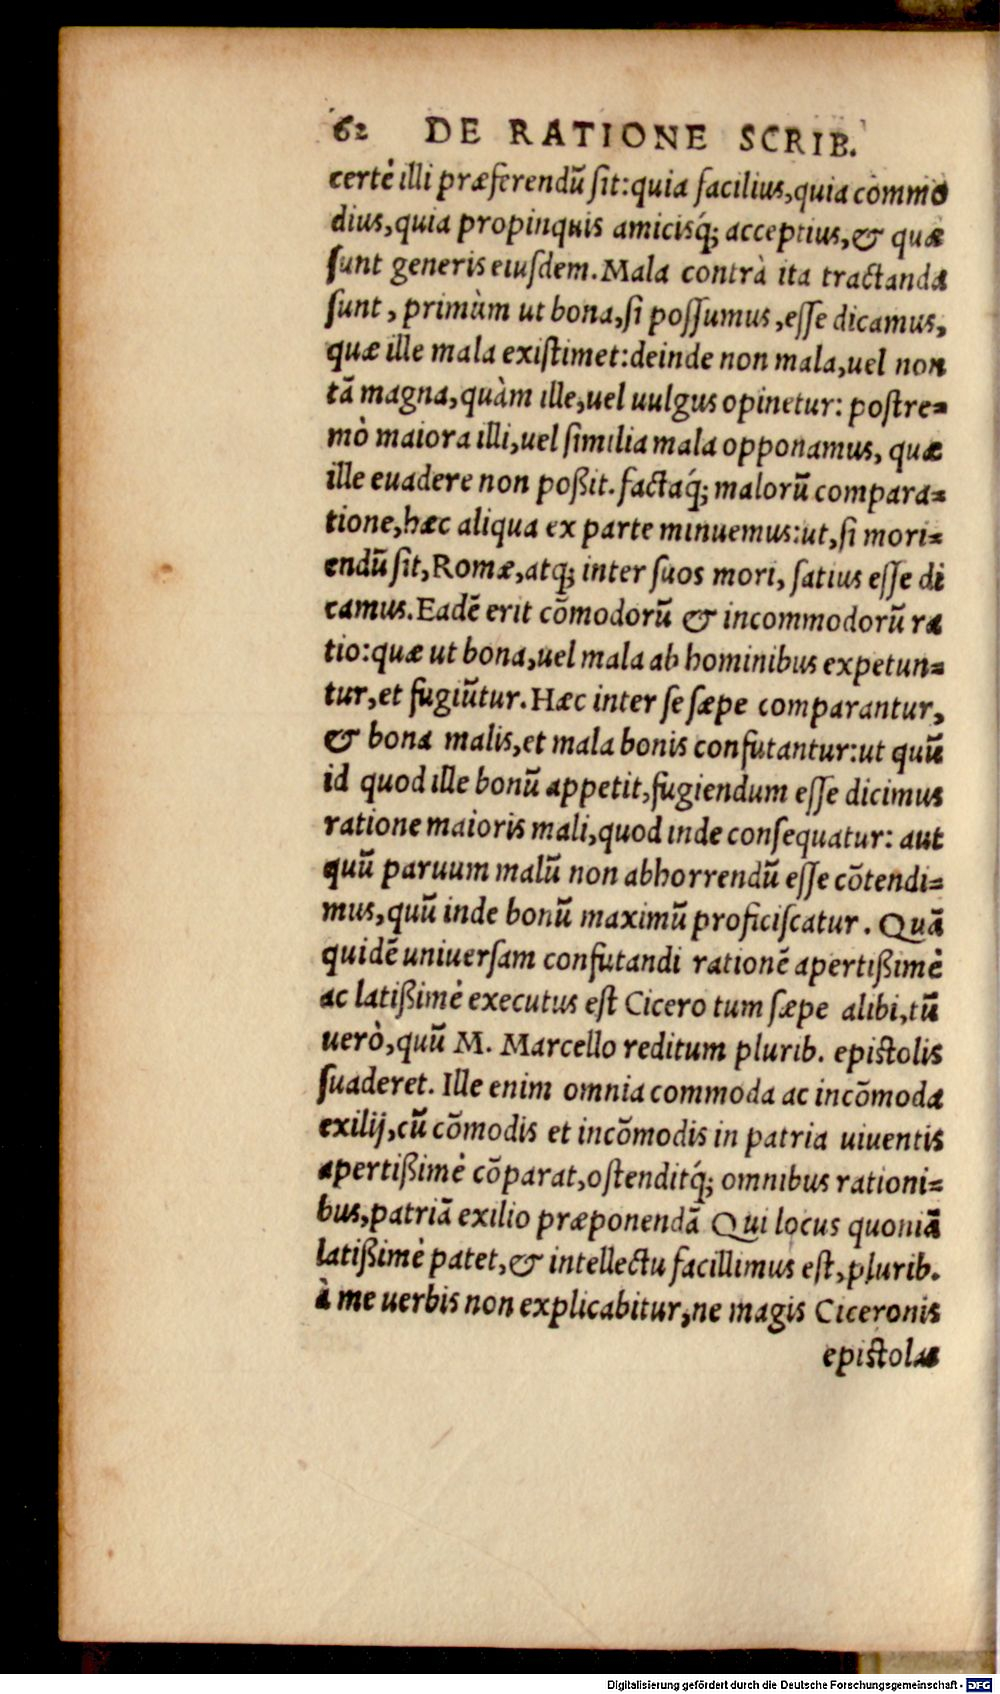 62 DE RATIONE SCRIB.
certè illi præferendũ sit: quia facilius, quia commo
dius, quia propinquis amicisq́; acceptius, & quæ
sunt generis eiusdem. Mala contrà ita tractanda
sunt, primùm ut bona, si possumus, esse dicamus,
quæ ille mala existimet: deinde non mala, uel non
tã magna, quàm ille, uel uulgus opinetur: postre=
mò maiora illi, uel similia mala opponamus, quæ
ille euadere non poßit. factaq́; malorũ compara=
tione, hæc aliqua ex parte minuemus: ut, si mori=
endũ sit, Romæ, atq; inter suos mori, satius esse di
camus. Eadẽ erit cõmodorũ & incommodorũ ra
tio: quæ ut bona, uel mala ab hominibus expetun=
tur, et fugiũtur. Hæc inter se sæpe comparantur,
& bona malis, et mala bonis confutantur: ut quũ
id quod ille bonũ appetit, fugiendum esse dicimus
ratione maioris mali, quod inde consequatur: aut
quũ paruum malũ non abhorrendũ esse cõtendi=
mus, quũ inde bonũ maximũ proficiscatur. Quã
quidẽ uniuersam confutandi rationẽ apertißimè
ac latißimè executus est Cicero tum sæpe alibi, tũ
uerò, quũ M. Marcello reditum plurib. epistolis
suaderet. Ille enim omnia commoda ac incõmoda
exilij, cũ cõmodis et incõmodis in patria uiuentis
apertißimè cõparat, ostenditq́; omnibus rationi=
bus, patriã exilio præponendã Qui locus quoniã
latißimè patet, & intellectu facillimus est, plurib.
à me uerbis non explicabitur, ne magis Ciceronis
epistolas
Digitalisierung gefördert durch die Deutsche Forschungsgemeinschaft - DFG